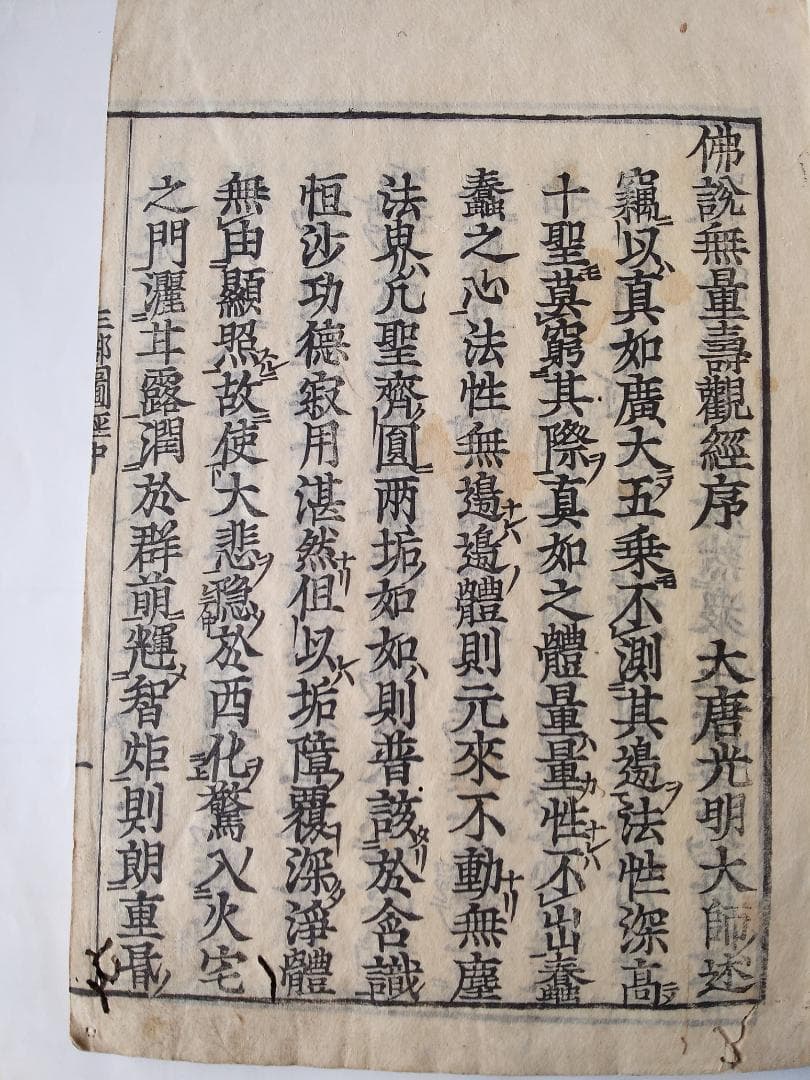 佛說無量壽觀經序 大唐光明大師述
竊以真如廣大五乗不測其邊法性深高
十聖莫窮其際真如之體量量性不出蠢
蠢之心法性無邊邊體則元來不動無塵
法界凡聖齊圓兩垢如如則普該於含識
恒沙功德寂用湛然但以垢障覆深淨體
無由顯照故使大悲隱於西化驚入火宅
之門灑甘露潤於群萌輝智炬則朗重昬